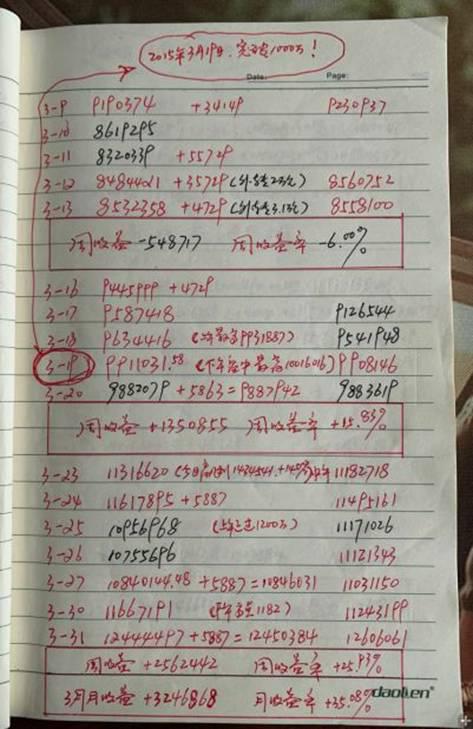 2015年3月19日，完成1000万！
Date: Page:
3-9 9190374 +34149 9230937
3-10 8619295
3-11 8320339 +55729
3-12 8484421 +35729 8560752
3-13 8532358 +4729 8558100
周收益 -548717 周收益率 -6.00%
3-16 9445999 +4729
3-17 9587418 9126544
3-18 9634416 9541948
3-19 9911031.58 (下午盘中最高10016016) 9908146
3-20 9882079 +5863=9887942 9883619
周收益 +1350855 周收益率 +15.83%
3-23 11316620 11182718
3-24 11617895 +5887 11495161
3-25 10956968 11171026
3-26 10755696 11121343
3-27 10840144.48 +5887=10846031 11031150
3-30 11667191 11243199
3-31 12444497 +5887=12450384 12606061
周收益 +2562442 周收益率 +25.93%
3月月收益 +3246868 月收益率 +35.08%
daolen